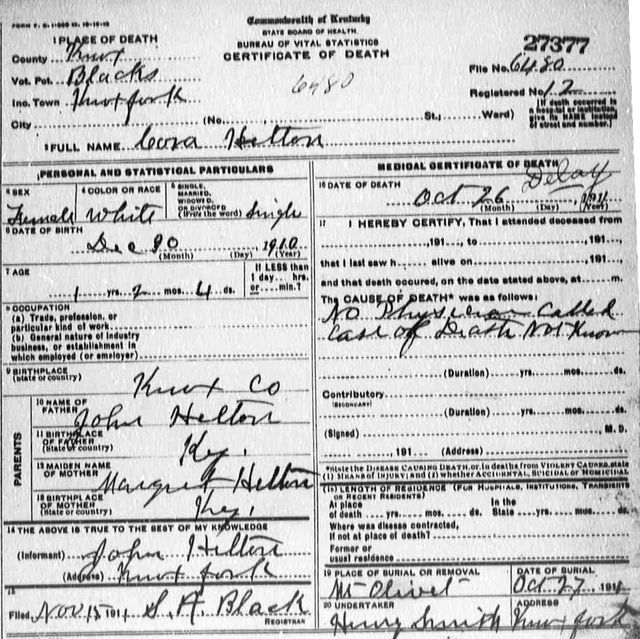 FORM V. S. 1-
Commonwealth of Kentucky
STATE BOARD OF HEALTH.
BUREAU OF VITAL STATISTICS
CERTIFICATE OF DEATH
6480
27377
File No. 6480
Registered No. 12
[If death occurred in a hospital or institution, give its NAME instead of street and number.]
1 PLACE OF DEATH
County Knox
Vot. Pct. Blacks
Inc. Town Knox fork
City (No. St.; Ward)
2 FULL NAME Cora Helton
PERSONAL AND STATISTICAL PARTICULARS
3 SEX Female
4 COLOR OR RACE White
5 SINGLE, MARRIED, WIDOWED, OR DIVORCED (Write the word) Single
6 DATE OF BIRTH
Dec 1910
(Month) (Day) (Year)
7 AGE
1 yrs. 2 mos. 4 ds.
If LESS than 1 day.... hrs. or.... min.?
8 OCCUPATION
(a) Trade, profession, or particular kind of work
(b) General nature of industry business, or establishment in which employed (or employer)
9 BIRTHPLACE (State or country)
Knox Co
PARENTS
10 NAME OF FATHER John Helton
11 BIRTHPLACE OF FATHER (State or country) Ky.
12 MAIDEN NAME OF MOTHER Margret Helton
13 BIRTHPLACE OF MOTHER (State or country) Ky.
14 THE ABOVE IS TRUE TO THE BEST OF MY KNOWLEDGE
(Informant) John Helton
(Address) Knox fork
15
Filed Nov 15 1911 S. A. Black
REGISTRAR
MEDICAL CERTIFICATE OF DEATH
16 DATE OF DEATH Delay
Oct 26 1911
(Month) (Day) (Year)
17 I HEREBY CERTIFY, That I attended deceased from
191 , to 191 ,
that I last saw h alive on 191 ,
and that death occured, on the date stated above, at m.
The CAUSE OF DEATH* was as follows:
No Physician called
Case of Death Not Known
(Duration) yrs. mos. ds.
Contributory
(SECONDARY)
(Duration) yrs. mos. ds.
(Signed) M.D.
, 191 (Address)
*State the DISEASE CAUSING DEATH, or, in deaths from VIOLENT CAUSES, state (1) MEANS OF INJURY; and (2) whether ACCIDENTAL, SUICIDAL OR HOMICIDAL
18 LENGTH OF RESIDENCE (FOR HOSPITALS, INSTITUTIONS, TRANSIENTS OR RECENT RESIDENTS)
At place of death yrs. mos. ds.
In the State yrs. mos. ds.
Where was disease contracted, if not at place of death?
Former or usual residence
19 PLACE OF BURIAL OR REMOVAL
Mt Olivet
DATE OF BURIAL
Oct 27 191
20 UNDERTAKER
Henry Smith
ADDRESS
Knox fork